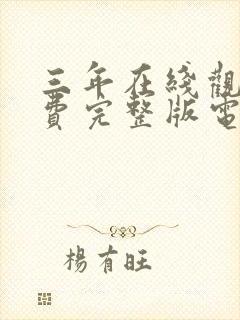 三年在綫觀
費完整版電
楊有旺